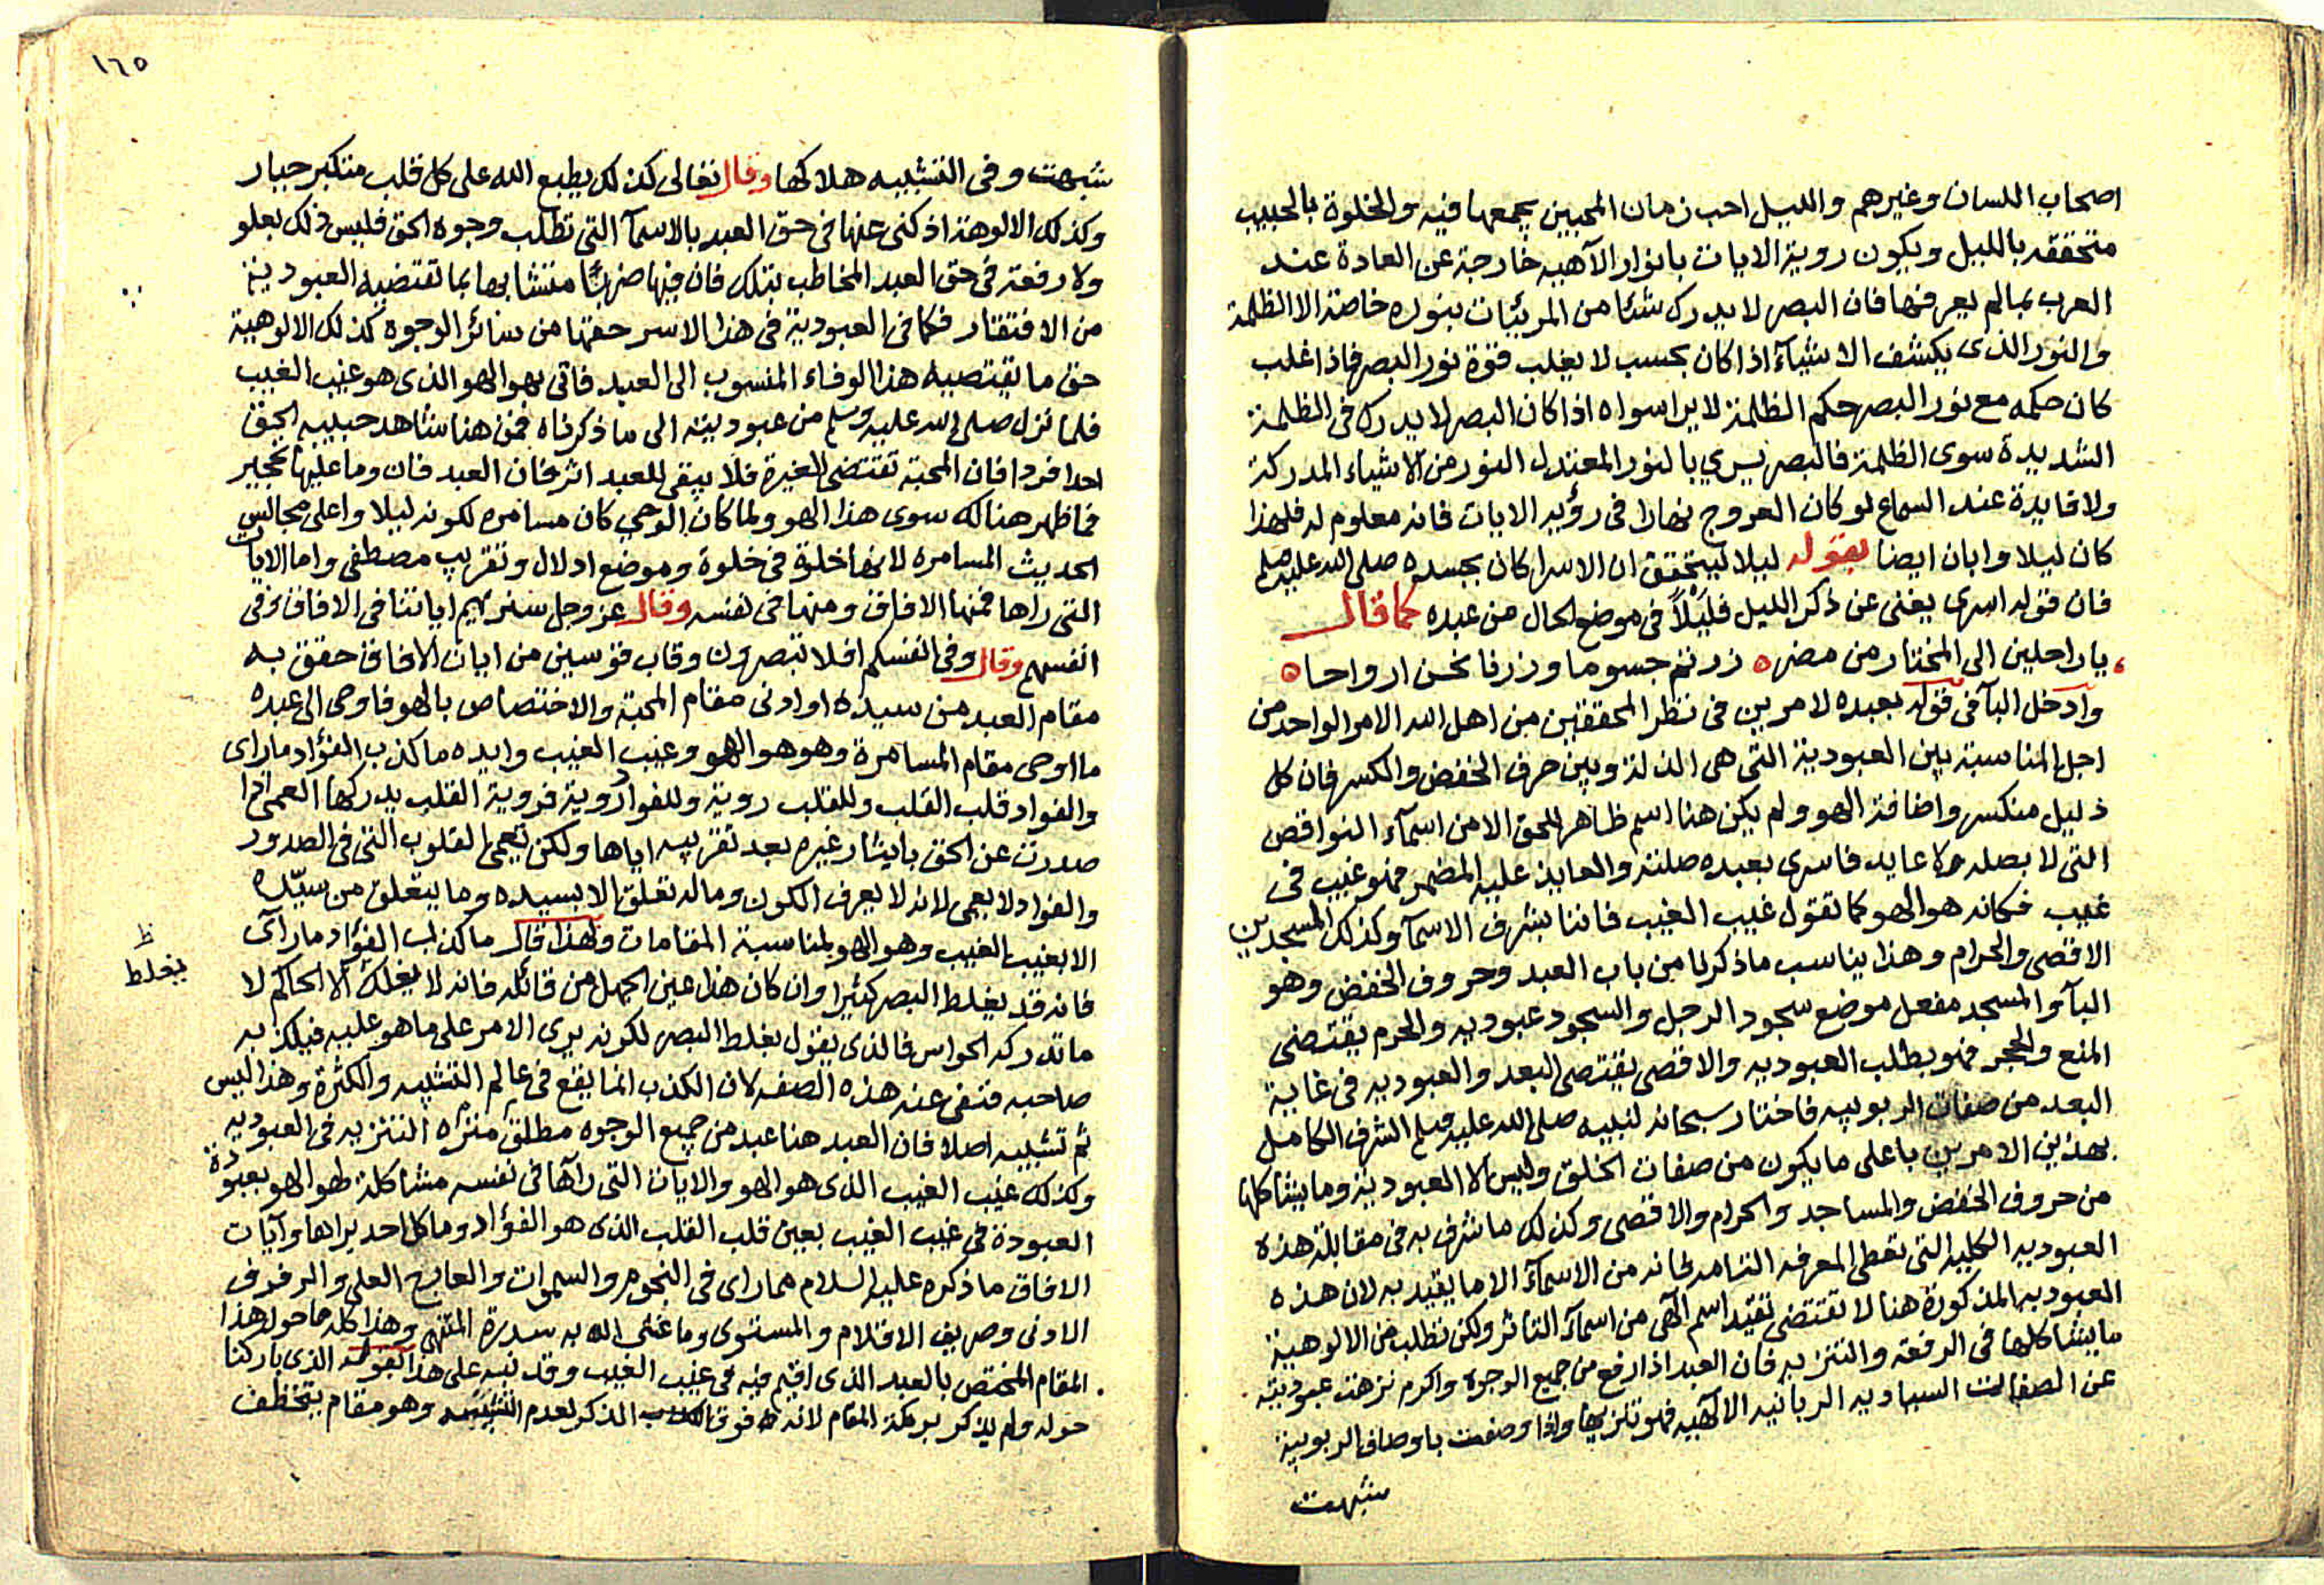 اصحاب اللسان وغيرهم والليل احب زمان المحبين يجمعها فيه والخلوة بالحبيب
متحققه بالليل ويكون روية الايات بانوار الآهيه خارجة عن العادة عند
العرب بما لم يعرفها فان البصر لا يدرك شئا من المرئيات بنوره خاصة الا الظلمة
والنور الذى يكشف الاشيآء اذا كان بحسب لا يغلب قوة نور البصر فاذا غلب
كان حكمه مع نور البصر حكم الظلمة لا يرا سواه اذا كان البصر لا يدرك فى الظلمة
الشديدة سوى الظلمة فالبصر يسري بالنور المعتدل النور من الاشياء المدركة
ولا فايدة عند السماع لو كان العروج نهارا فى رؤيه الايات فانه معلوم له فلهذا
كان ليلا وابان ايضا بقوله ليلا ليتحقق ان الاسرا كان بجسده صلى الله عليه وسلم
فان قوله اسرى يغنى عن ذكر الليل فليلاً فى موضع الحال من عبده كما قال
يا راحلين الى المختار من مضره زرتم جسوما وزرنا نحن ارواحا ه
وادخل البآ فى قوله بعبده لامرين فى نظر المحققين من اهل الله الامر الواحد من
اجل المناسبة بين العبودية التى هى الذلة وبين حرف الخفض والكسر فان كل
ذليل منكسر واضافة الهو ولم يكن هنا اسم ظاهر للحق الا من اسمآء النواقص
التى لا بصله ولا عايد فاسرى بعبده صلته والعايد عليه المضمر فهو غيب فى
غيب فكانه هو الهو كما تقول غيب الغيب فاننا بشرف الاسمآ وكذلك المسجدين
الاقصى والحرام وهذا يناسب ما ذكرنا من باب العبد وحروف الخفض وهو
البآ والمسجد مفعل موضع سجود الرجل والسجود عبوديه والحرم يقتضى
المنع والحجر فهو يطلب العبوديه والاقصى يقتصى البعد والعبوديه فى غاية
البعد من صفات الربوبيه فاختار سبحانه لنبيه صلى الله عليه وسلم الشرف الكامل
بهذين الامرين باعلى ما يكون من صفات الخلق وليس الا العبودية وما يشاكلها
من حروف الخفض والمساجد والحرام والاقصى وكذلك ما شرف به فى مقابلة هذه
العبوديه الكليه التى تعطى المعرفه التامه فانه من الاسمآء الا ما يقيد به لان هذه
العبوديه المذكورة هنا لا تقتضى تقيد اسم الآهى من اسمآء التاثر ولكن تطلب من الالوهية
ما يشاكلها فى الرفعه والتنزيه فان العبد اذا رفع من جميع الوجوه واكرم نزهت عبوديته
عن الصفات السياديه الربانيه الآلهيه فهو تنزيها واذا وصفت باوصاف الربوبية
شبهت
١٦٥
شبهت وفى التشبيه هلاكها وقال تعالى كذلك يطبع الله على كل قلب متكبر جبار
وكذلك الالوهة اذ كنى عنها فى حق العبد بالاسمآ التى تطلب وجوه الحق فليس ذلك بعلو
ولا رفعة فى حق العبد المخاطب بتلك فان فيها ضربًا متشابها بما تقتضيه العبودية
من الافتقار فكما فى العبودية فى هذا الاسر حقها من سائر الوجوه كذلك الالوهية
حق ما يقتصيه هذا الوفاء المنسوب الى العبد فاتى بهو الهو الذى هو غيب الغيب
فلما نزل صلى الله عليه وسلم من عبوديته الى ما ذكرناه فمن هنا شاهد حبيبه الحق
احدا فردا فان المحبة تقتضى الغيرة فلا يبقى للعبد اثر فان العبد فان وما عليها تحجير
فما ظهر هناك سوى هذا الهو ولما كان الوحي كان مسامره لكونه ليلا واعلى مجالس
الحديث المسامره لانها خلوة فى خلوة وموضع ادلال وتقريب مصطفى واما الايات
التى راها فمنها الافاق ومنها فى نفسه وقال عز وجل سنريهم اياتنا فى الافاق وفى
انفسهم وقال وفى انفسكم افلا تبصرون وقاب قوسين من ايات الافاق حقق به
مقام العبد من سيده او ادنى مقام المحبة والاختصاص بالهو فاوحى الى عبده
ما اوحى مقام المسامرة وهو هو الهو وغيب الغيب وايده ما كذب الفؤاد ما راى
والفواد قلب القلب وللقلب روية وللفواد روية فروية القلب يدركها العمى اذا
صدرت عن الحق بايثار غيره بعد تقريبه اياها ولكن تعمى القلوب التى فى الصدور
والفواد لا يعمى لانه لا يعرف الكون وماله تعلق الا بسيده وما يتعلق من سيّده
الا بغيب الغيب وهو الهو لمناسبة المقامات ولهذا قال ما كذب الفؤاد ما رآى
فانه قد يغلط البصر كثيرا وان كان هذا عين الجهل من قائله فانه لا يغلط الا الحاكم لا
ما تدركه الحواس فالذى يقول يغلط البصر لكونه يرى الامر على ما هو عليه فيكذبه
صاحبه فنفى عنه هذه الصفه لان الكذب انما يقع فى عالم التشبيه والكثرة وهذا ليس
ثم تشبيه اصلا فان العبد هنا عبد من جميع الوجوه مطلق منزه التنزيه فى العبوديه
وكذلك غيب الغيب الذى هو الهو والايات التى رآها فى نفسه مشاكلة هو الهو بعبودة
العبودة فى غيب الغيب بعين قلب القلب الذى هو الفؤاد وما كل احد يراها وآيات
الافاق ما ذكره عليه السلام مما راى فى النجوم والسموات والمعارج العلى والرفرف
الادنى وصريف الاقلام والمستوى وما غشى الله به سدرة المنتهى وهذا كله مما حول هذا
المقام المختص بالعبد الذى اقيم فيه فى غيب الغيب وقد نبه على هذا بقوله الذى باركنا
حوله ولم يذكر بركة المقام لانه فوق الذكر لعدم التشبيه وهو مقام يتخطف
ظ
يغلط